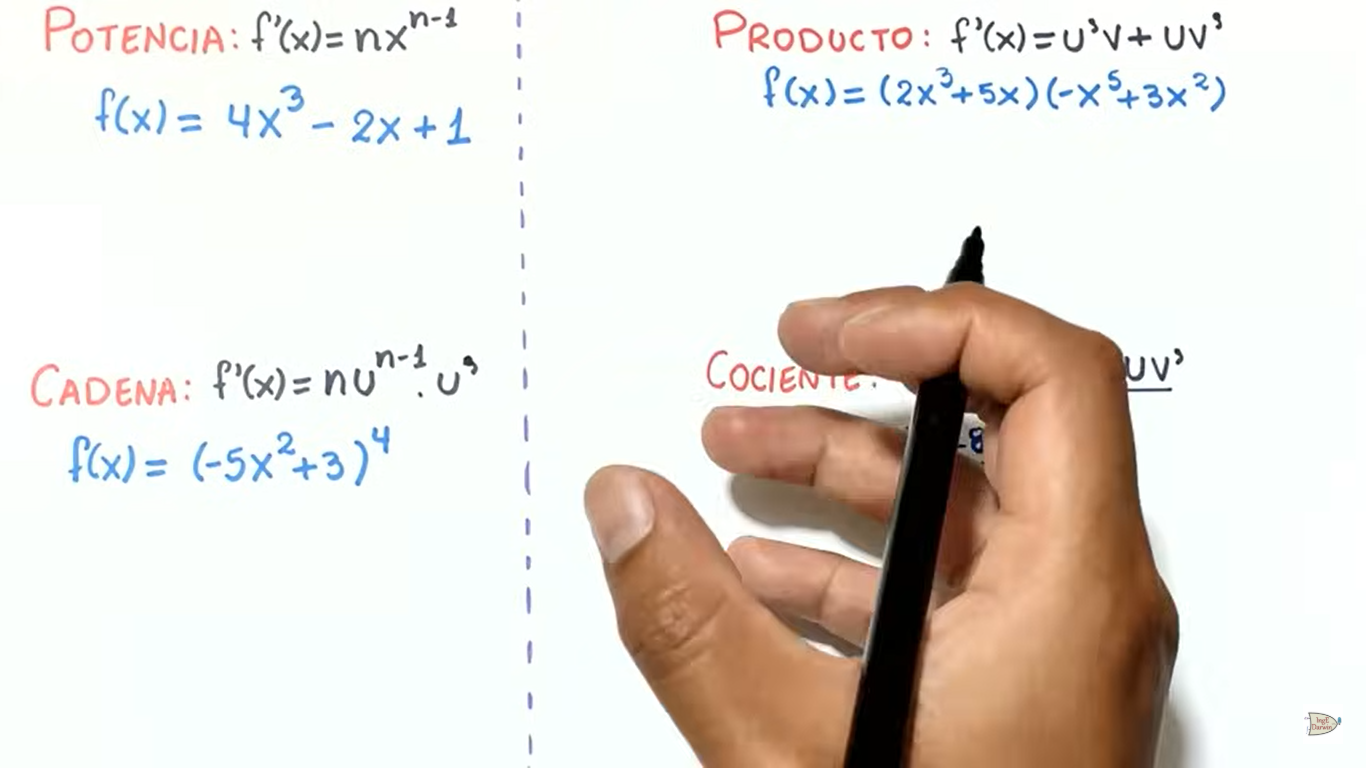 POTENCIA: f'(x)= nxⁿ⁻¹
f(x)= 4x³ - 2x + 1
PRODUCTO: f'(x)= U'V + UV'
f(x)= (2x³+5x)(-x⁵+3x²)
CADENA: f'(x)= nuⁿ⁻¹. u'
f(x)= (-5x²+3)⁴
COCIENTE: UV'
-8
IngE
Darwin